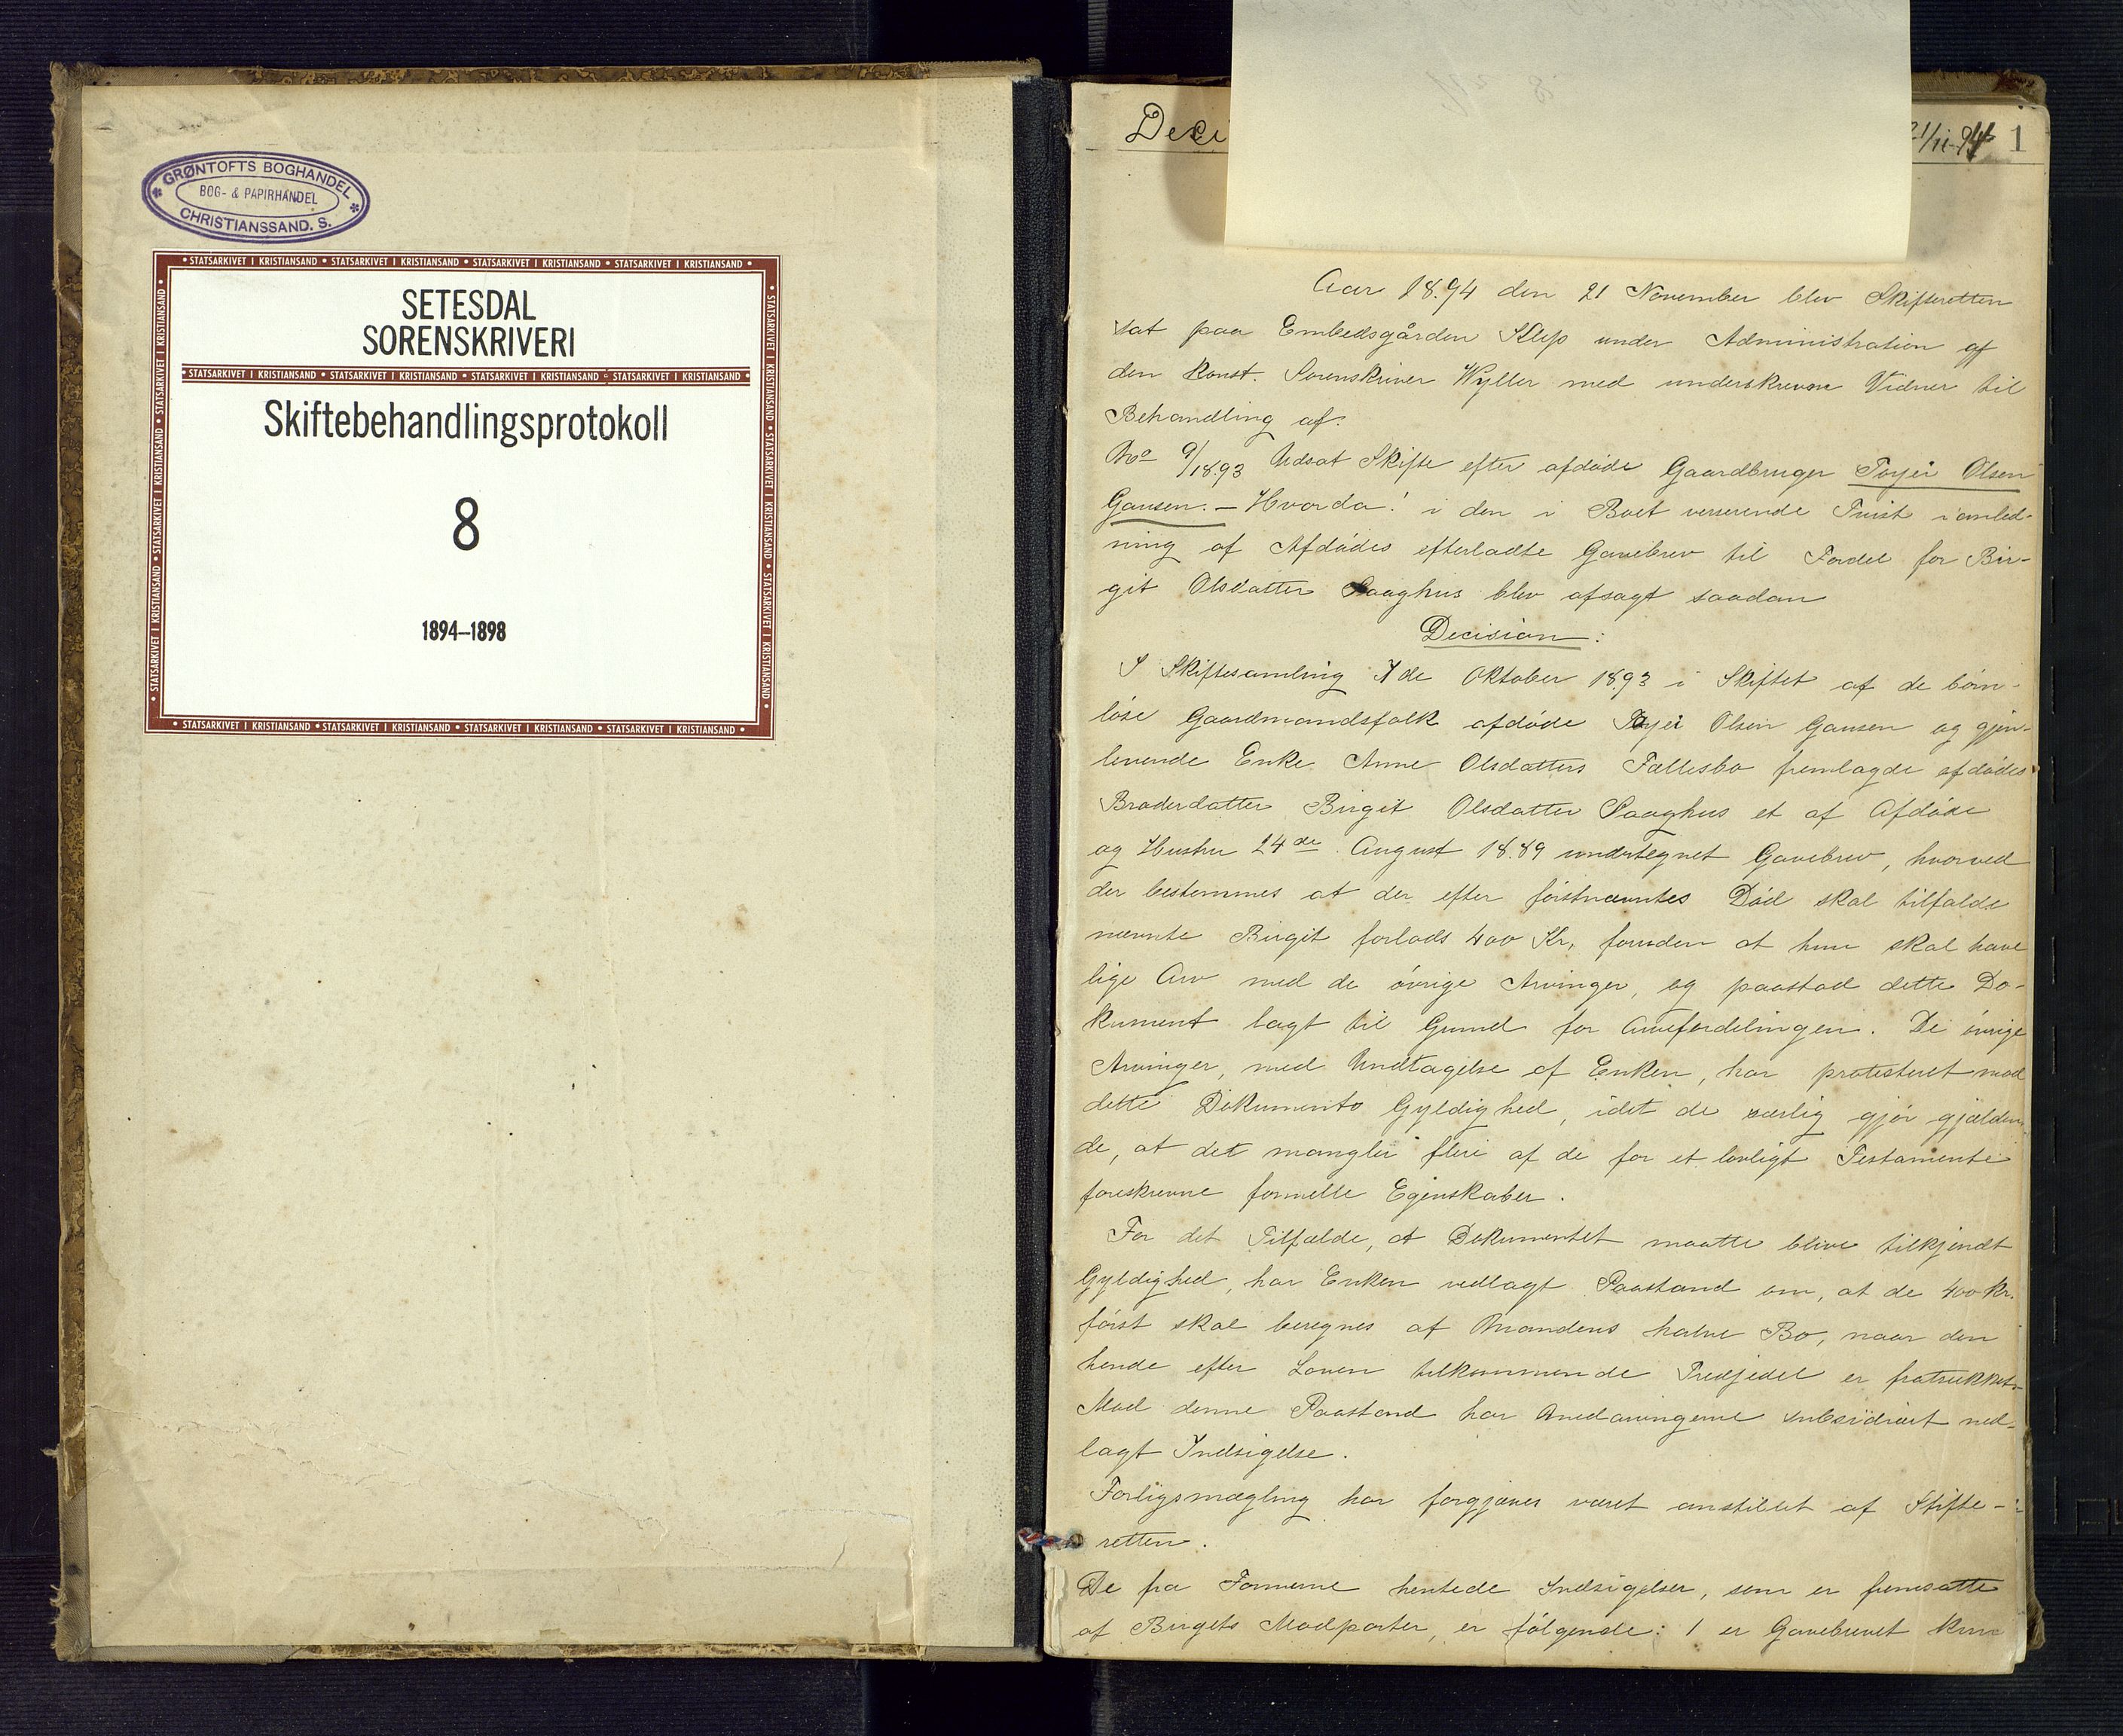 GRØNTOFTS BOGHANDEL
BOG- & PAPIRHANDEL
CHRISTIANSSAND. S.
• STATSARKIVET I KRISTIANSAND • STATSARKIVET I KRISTIANSAND • STATSARKIVET I KRISTIANSAND • STATSARKIVET I KRISTIANSAND •
SETESDAL
SORENSKRIVERI
• STATSARKIVET I KRISTIANSAND • STATSARKIVET I KRISTIANSAND • STATSARKIVET I KRISTIANSAND • STATSARKIVET I KRISTIANSAND •
Skiftebehandlingsprotokoll
8
1894–1898
• STATSARKIVET I KRISTIANSAND • STATSARKIVET I KRISTIANSAND • STATSARKIVET I KRISTIANSAND • STATSARKIVET I KRISTIANSAND •
Deci 21/11-94 1
Aar 1894 den 21 November blev Skifteretten
sat paa Embedsgården Klep under Administration af
den konst. Sorenskriver Wyller med underskrevne Vidner til
Behandling af:
No 9/1893 Udsat Skifte efter afdøde Gaardbruger Torjei Olsen
Gausen. – Hvorda: i den i Boet verserende Tvist i anled-
ning af Afdødes efterladte Gavebrev til Fordel for Bir-
git Olsdatter Haaghus blev afsagt saadan
Decision:
I Skiftesamling 7de Oktober 1893 i Skiftet af de børn-
løse Gaardmandsfolk afdøde Torjei Olsen Gausen og gjen-
levende Enke Anne Olsdatters Fællesbo fremlagde afdødes
Broderdatter Birgit Olsdatter Haaghus et af Afdøde
og Hustru 24de August 1889 undertegnet Gavebrev, hvorved
der bestemmes at der efter førstnævntes Død skal tilfalde
nævnte Birgit forlods 400 Kr, foruden at hun skal have
lige Arv med de øvrige Arvinger, og paastod dette Do-
kument lagt til Grund for Arvefordelingen. De øvrige
Arvinger, med Undtagelse af Enken, har protesteret mod
dette Dokuments Gyldighed, idet de særlig gjør gjælden-
de, at det mangler flere af de for et lovligt Testamente
foreskrevne formelle Egenskaber.
For det Tilfælde, at Dokumentet maatte blive tilkjendt
Gyldighed, har Enken nedlagt Paastand om, at de 400 Kr.
først skal beregnes af Mandens halve Bo, naar den
hende efter Loven tilkommende Tredjedel er fratrukket.
Mod denne Paastand har Medarvingerne subsidiært ned-
lagt Indsigelse.
Forligsmægling har forgjæves været anstillet af Skifte-
retten.
De fra Formerne hentede Indsigelser, som er fremsatte
af Birgits Modparter, er følgende: 1 er Gavebrevet kun